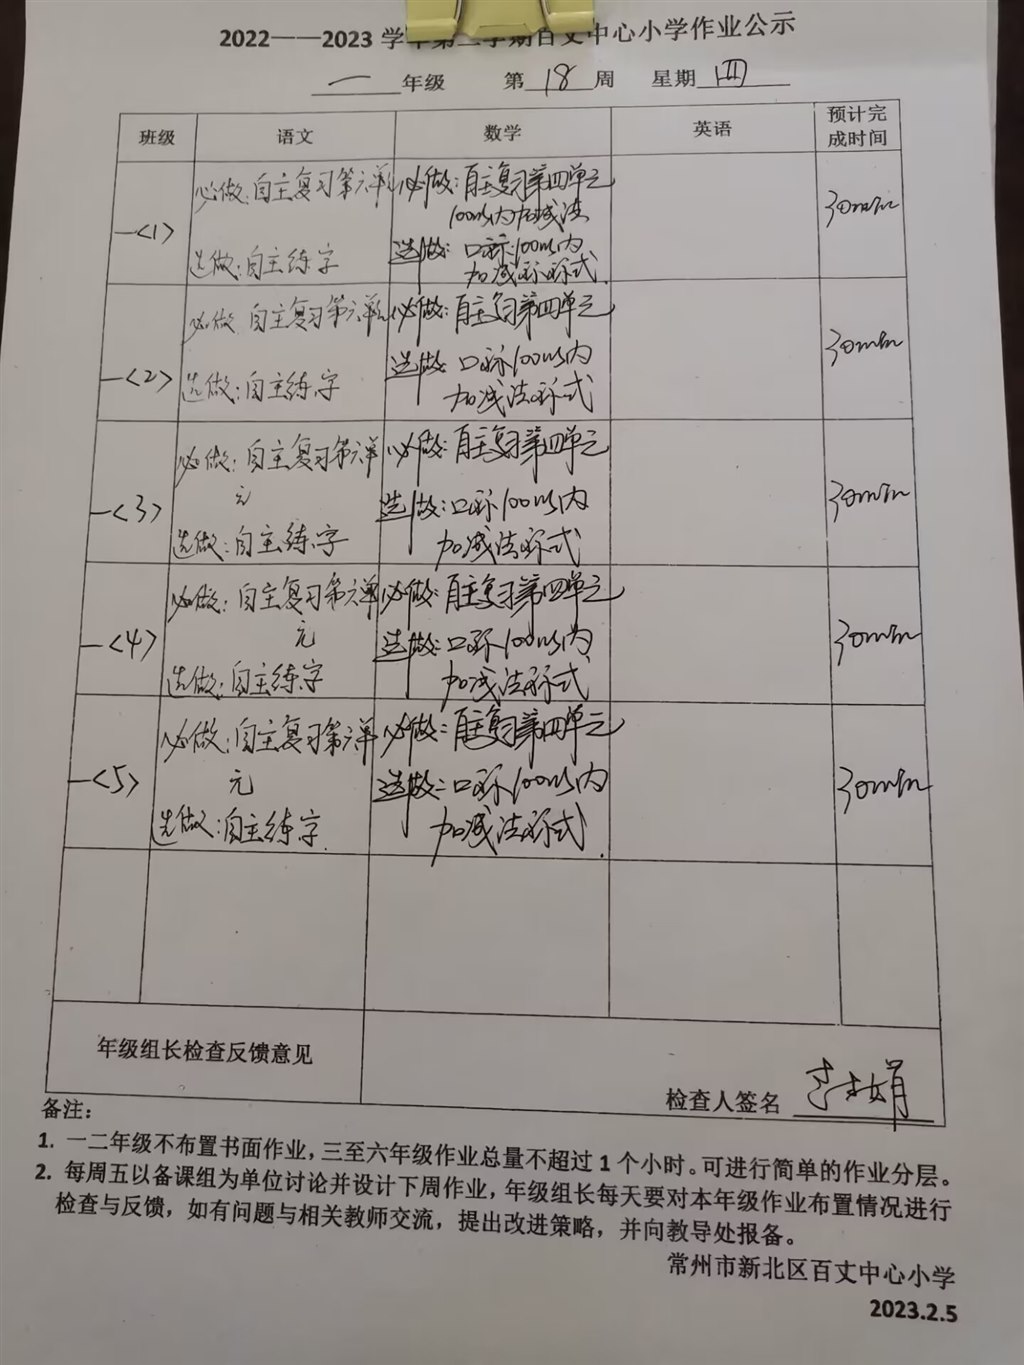 2022——2023 学年第二学期百丈中心小学作业公示
一 年级 第 18 周 星期 四
班级 语文 数学 英语 预计完成时间
一<1> 必做:自主复习第六单 必做:自主复习第四单元 30min
100以内加减法
选做:自主练字 选做:口算100以内
加减法算式
一<2> 必做 自主复习第六单元 必做:自主复习第四单元 30min
选做:自主练字 选做:口算100以内
加减法算式
一<3> 必做:自主复习第六单 必做:自主复习第四单元 30min
元 选做:口算100以内
选做:自主练字 加减法算式
一<4> 必做:自主复习第六单 必做:自主复习第四单元 30min
元 选做:口算100以内
选做:自主练字 加减法算式
一<5> 必做:自主复习第六单 必做:自主复习第四单元 30min
元 选做:口算100以内
选做:自主练字. 加减法算式.
年级组长检查反馈意见
检查人签名
备注:
1. 一二年级不布置书面作业，三至六年级作业总量不超过 1 个小时。可进行简单的作业分层。
2. 每周五以备课组为单位讨论并设计下周作业，年级组长每天要对本年级作业布置情况进行
检查与反馈，如有问题与相关教师交流，提出改进策略，并向教导处报备。
常州市新北区百丈中心小学
2023.2.5